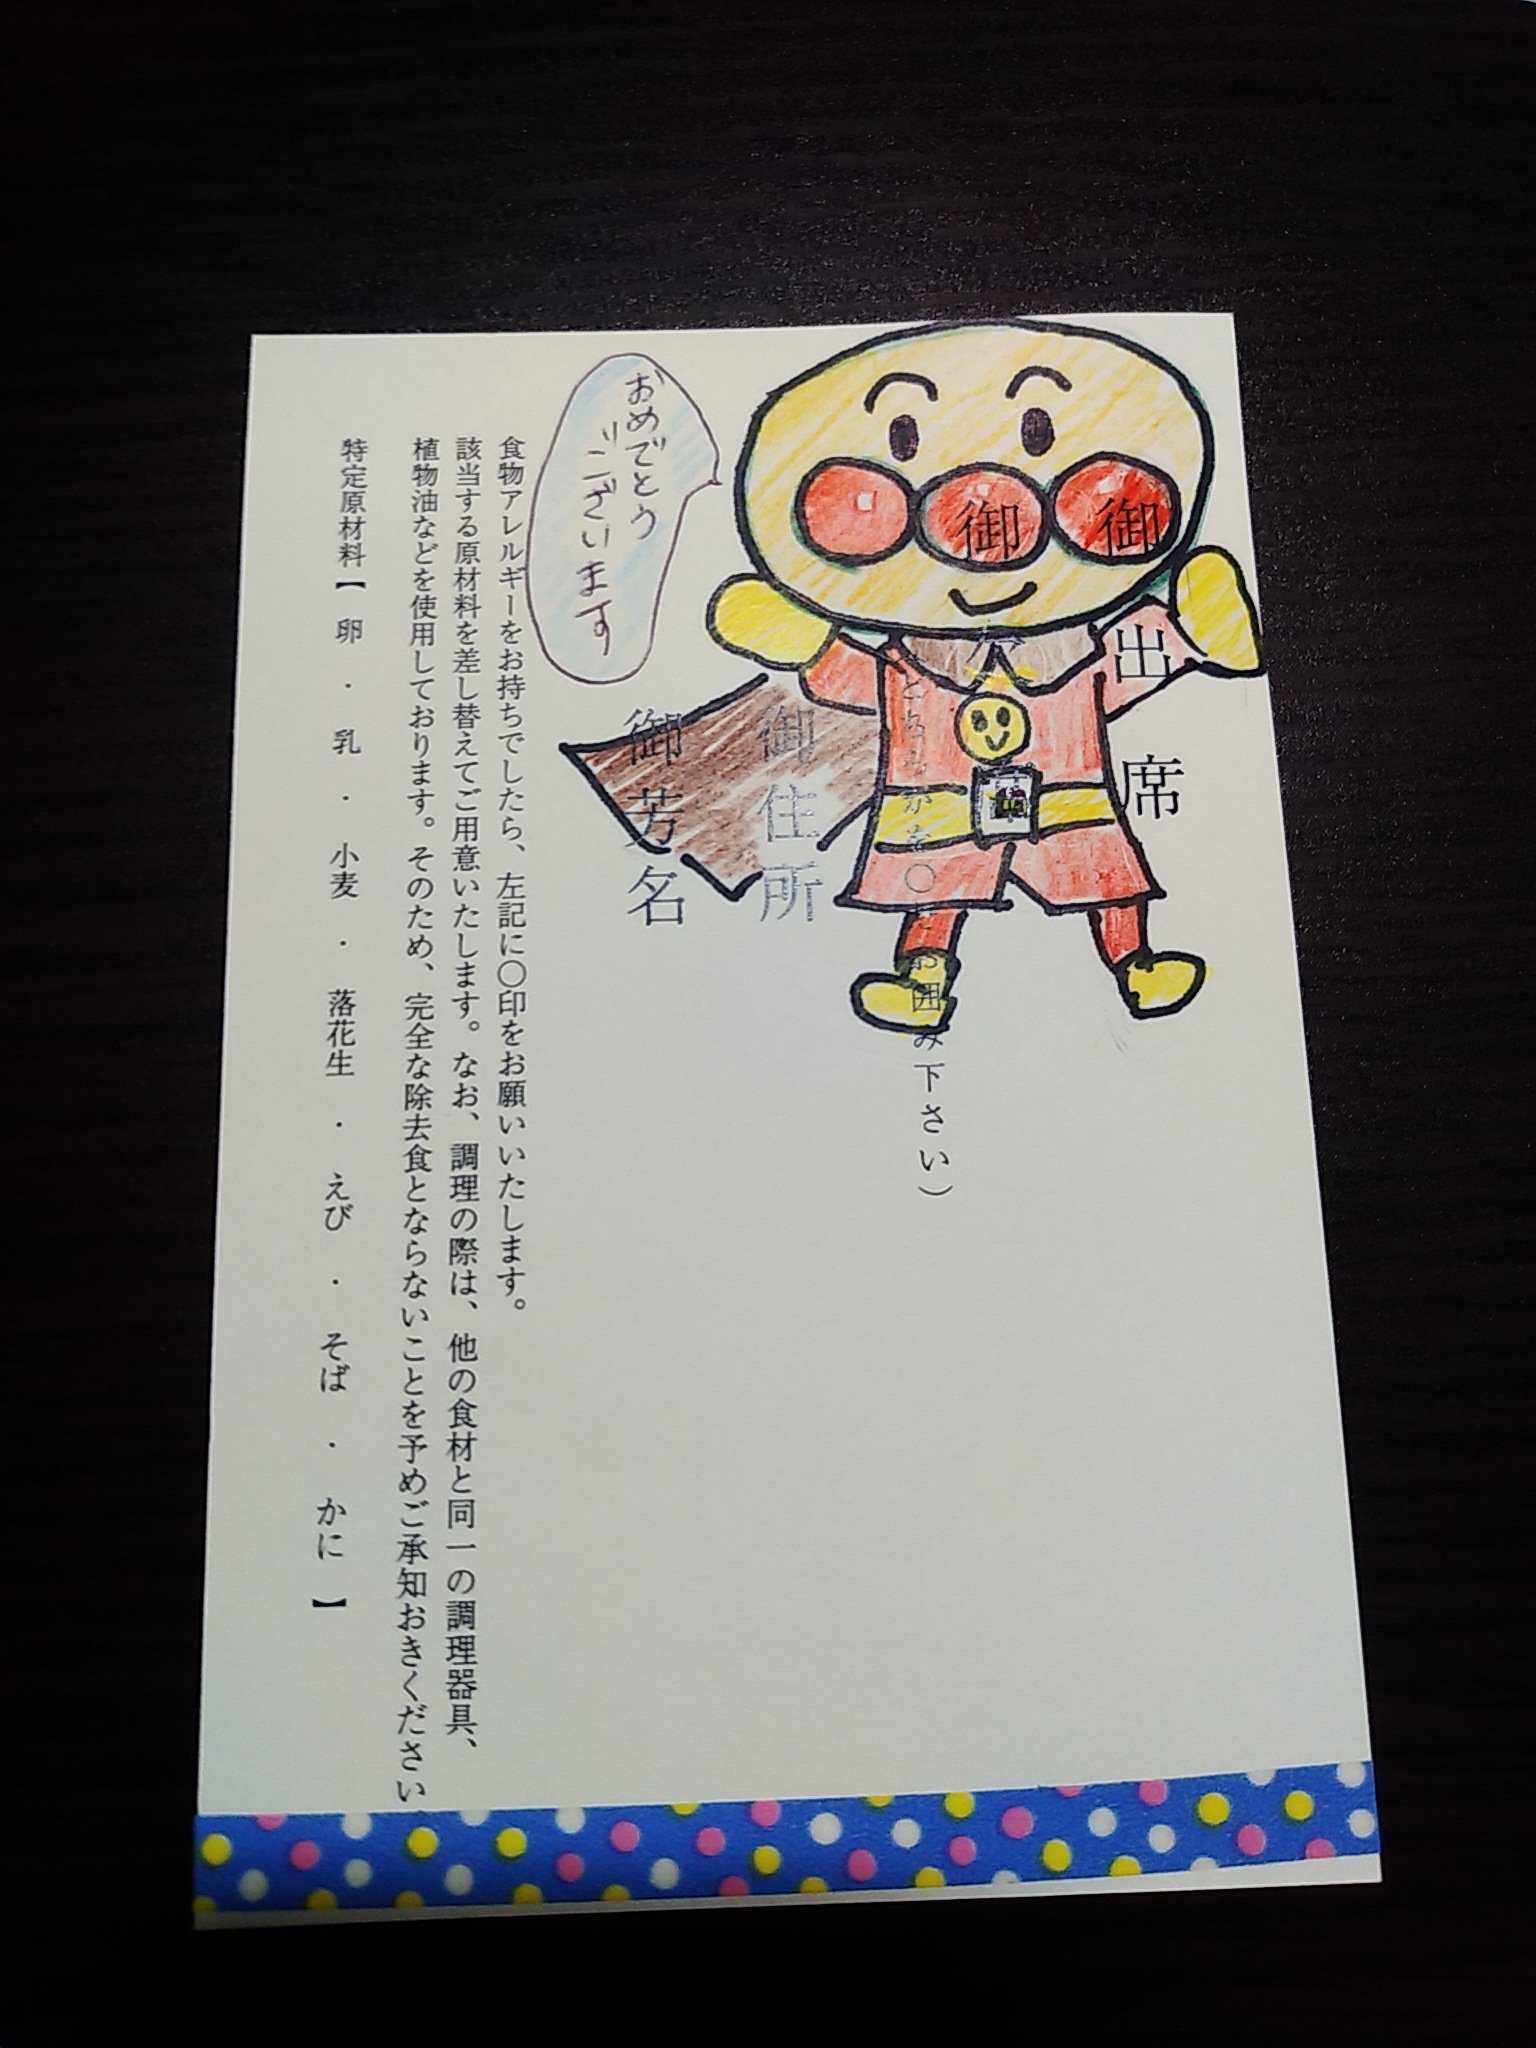 御出席
御欠席
（どちらかを〇でお囲み下さい）
御住所
御芳名
おめでとう
ございます
食物アレルギーをお持ちでしたら、左記に〇印をお願いいたします。
該当する原材料を差し替えてご用意いたします。なお、調理の際は、他の食材と同一の調理器具、
植物油などを使用しております。そのため、完全な除去食とならないことを予めご承知おきください
特定原材料【 卵 ・ 乳 ・ 小麦 ・ 落花生 ・ えび ・ そば ・ かに 】